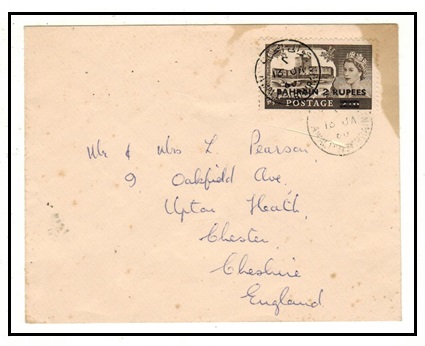 BAHRAIN 2 RUPEES
POSTAGE
16 JA
60
Mr & Mrs L Pearson
9 Oakfield Ave
Upton Heath
Chester
Cheshire
England